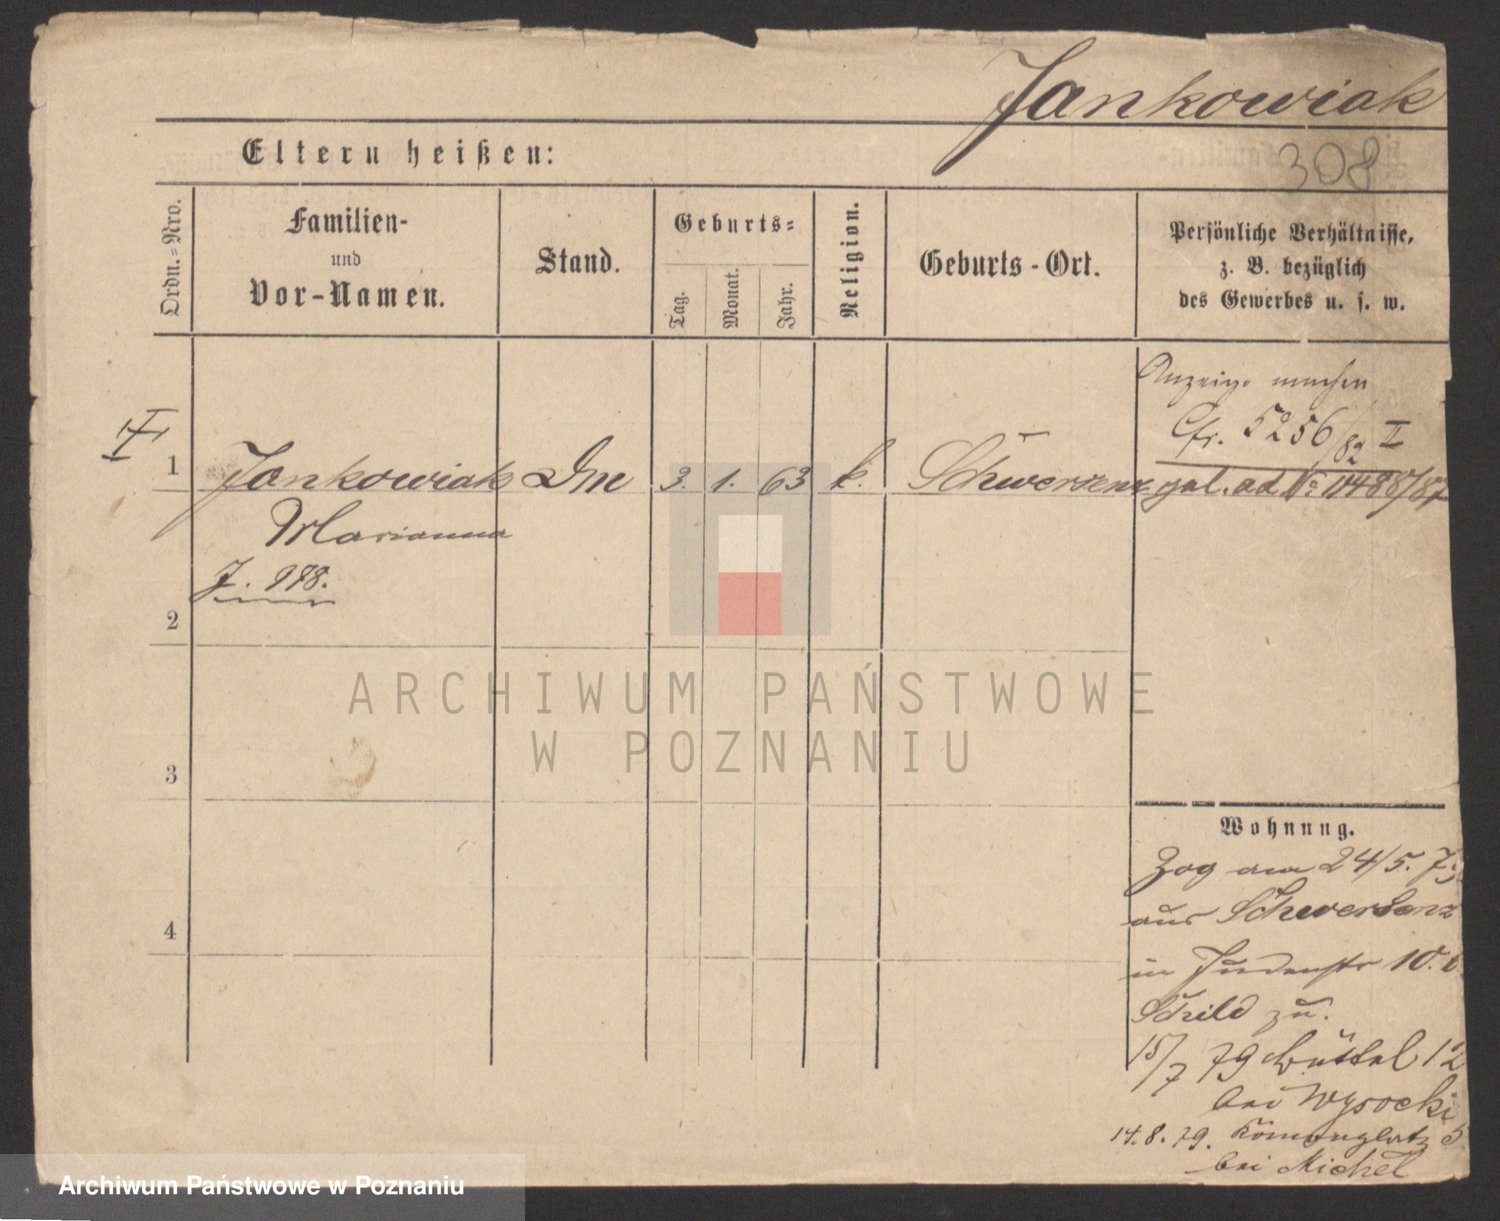 Jankowiak
308
Eltern heißen:
Ordn.=Nro.
Familien-
und
Vor-Namen.
Stand.
Geburts=
Tag.
Monat.
Jahr.
Religion.
Geburts-Ort.
Persönliche Verhältnisse,
z. B. bezüglich
des Gewerbes u. s. w.
Anzeige machen
Cfr. 5256/82 II
1 Jankowiak 3. 1. 63 k. Schwersenz
Marianna
J. 978.
2
3
4
Wohnung.
Zog am 24/5. 79
aus Schwersenz
in Judenstr 10.
Schild zu.
15/7 79 Büttel 12
bei Wysocki
14.8.79. 5
bei Michel
ARCHIWUM PAŃSTWOWE
W POZNANIU
Archiwum Państwowe w Poznaniu